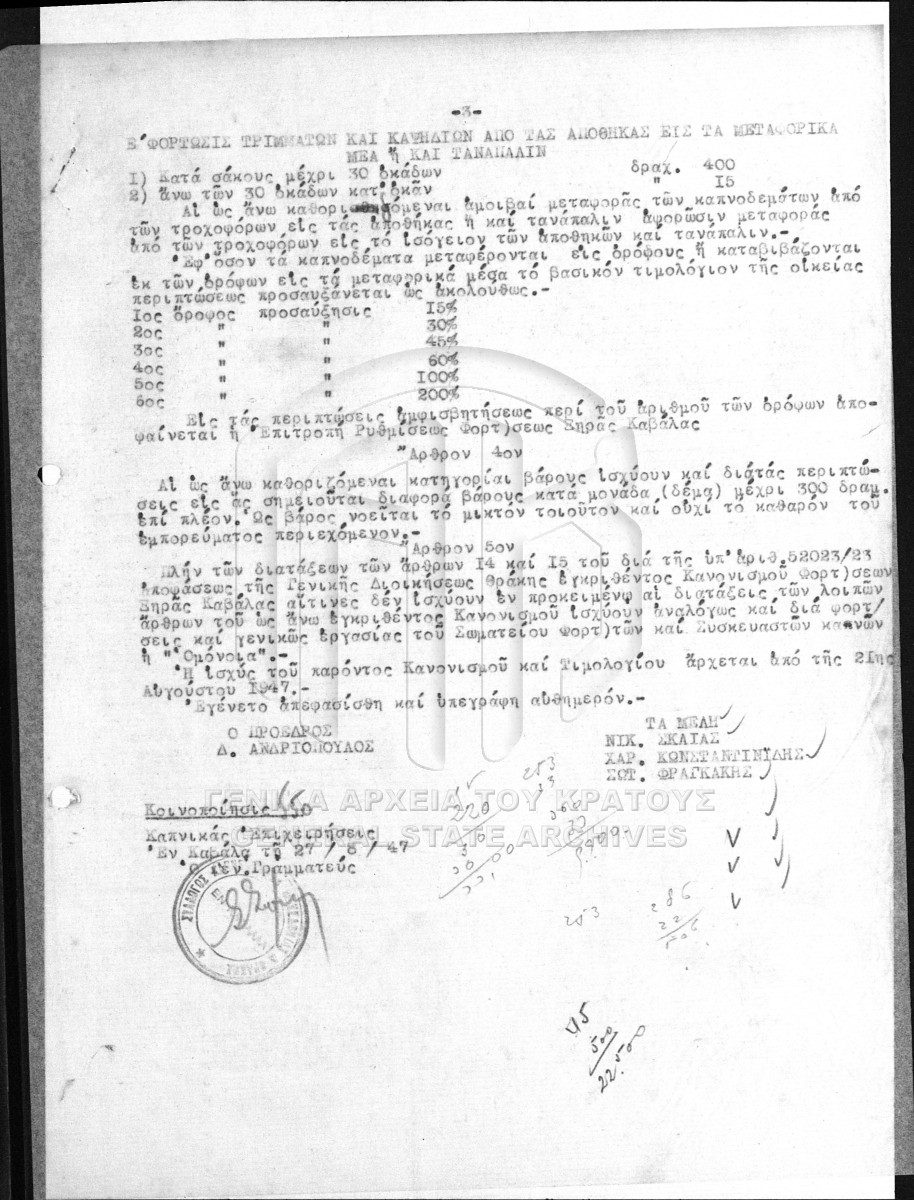 -3-
Ε΄ΦΟΡΤΩΣΙΣ ΤΡΙΜΜΑΤΩΝ ΚΑΙ ΚΑΨΗΔΙΩΝ ΑΠΟ ΤΑΣ ΑΠΟΘΗΚΑΣ ΕΙΣ ΤΑ ΜΕΤΑΦΟΡΙΚΑ
ΜΕΑ ἤ ΚΑΙ ΤΑΝΑΠΑΛΙΝ
Ι) Κατά σάκους μέχρι 30 ὀκάδων δραχ. 400
2) ἄνω τῶν 30 ὀκάδων κατ'ὀκᾶν " Ι5
Αἱ ὡς ἄνω καθοριζόμεναι ἀμοιβαί μεταφορᾶς τῶν καπνοδεμάτων ἀπό
τῶν τροχοφόρων εἰς τάς ἀποθήκας ἤ καί τανάπαλιν ἀφορῶσιν μεταφοράς
ἀπό τῶν τροχοφόρων εἰς τό ἰσόγειον τῶν ἀποθηκῶν καί τανάπαλιν.-
Ἐφ'ὅσον τά καπνοδέματα μεταφέρονται εἰς ὀρόφους ἤ καταβιβάζονται
ἐκ τῶν ὀρόφων εἰς τά μεταφορικά μέσα τό βασικόν τιμολόγιον τῆς οἰκείας
περιπτώσεως προσαυξάνεται ὡς ἀκολούθως.-
Ιος ὄροφος προσαύξησις Ι5%
2ος " " 30%
3ος " " 45%
4ος " " 60%
5ος " " Ι00%
6ος " " 200%
Εἰς τάς περιπτώσεις ἀμφισβητήσεως περί τοῦ ἀριθμοῦ τῶν ὀρόφων ἀπο-
φαίνεται ἡ Ἐπιτροπή Ρυθμίσεως Φορτ)σεως Ξηρᾶς Καβάλας
Ἄρθρον 4ον
Αἱ ὡς ἄνω καθοριζόμεναι κατηγορίαι βάρους ἰσχύουν καί διάτάς περιπτώ-
σεις εἰς ἅς σημειοῦται διαφορά βάρους κατά μονάδα (δέμα) μέχρι 300 δραμ.
ἐπί πλέον. Ὡς βάρος νοεῖται τό μικτόν τοιοῦτον καί οὐχί τό καθαρόν τοῦ
ἐμπορεύματος περιεχόμενον.-
Ἄρθρον 5ον
Πλήν τῶν διατάξεων τῶν ἄρθρων Ι4 καί Ι5 τοῦ διά τῆς ὑπ'ἀριθ.52023/23
ἀποφάσεως τῆς Γενικῆς Διοικήσεως Θράκης ἐγκριθέντος Κανονισμοῦ Φορτ)σεων
Ξηρᾶς Καβάλας αἵτινες δέν ἰσχύουν ἐν προκειμένῳ αἱ διατάξεις τῶν λοιπῶν
ἄρθρων τοῦ ὡς ἄνω ἐγκριθέντος Κανονισμοῦ ἰσχύουν ἀναλόγως καί διά φορτ/
σεις καί γενικῶς ἐργασίας τοῦ Σωματείου Φορτ)τῶν καί Συσκευαστῶν καπνῶν
ἡ "Ὁμόνοια".-
Ἡ ἰσχύς τοῦ παρόντος Κανονισμοῦ καί Τιμολογίου ἄρχεται ἀπό τῆς 2Ιης
Αὐγούστου Ι947.-
Ἐγένετο ἀπεφασίσθη καί ὑπεγράφη αὐθημερόν.-
Ο ΠΡΟΕΔΡΟΣ
Δ. ΑΝΔΡΙΟΠΟΥΛΟΣ
ΤΑ ΜΕΛΗ
ΝΙΚ. ΣΚΑΙΑΣ
ΧΑΡ. ΚΩΝΣΤΑΝΤΙΝΙΔΗΣ
ΣΩΤ. ΦΡΑΓΚΑΚΗΣ
ΓΕΝΙΚΑ ΑΡΧΕΙΑ ΤΟΥ ΚΡΑΤΟΥΣ
GENERAL STATE ARCHIVES
Κοινοποίησις
Καπνικάς Ἐπιχειρήσεις
Ἐν Καβάλᾳ τῇ 27/8/47
Ὁ Γεν.Γραμματεύς
ΣΥΛΛΟΓΟΣ
253
220
253
286
22
45
500
22.500